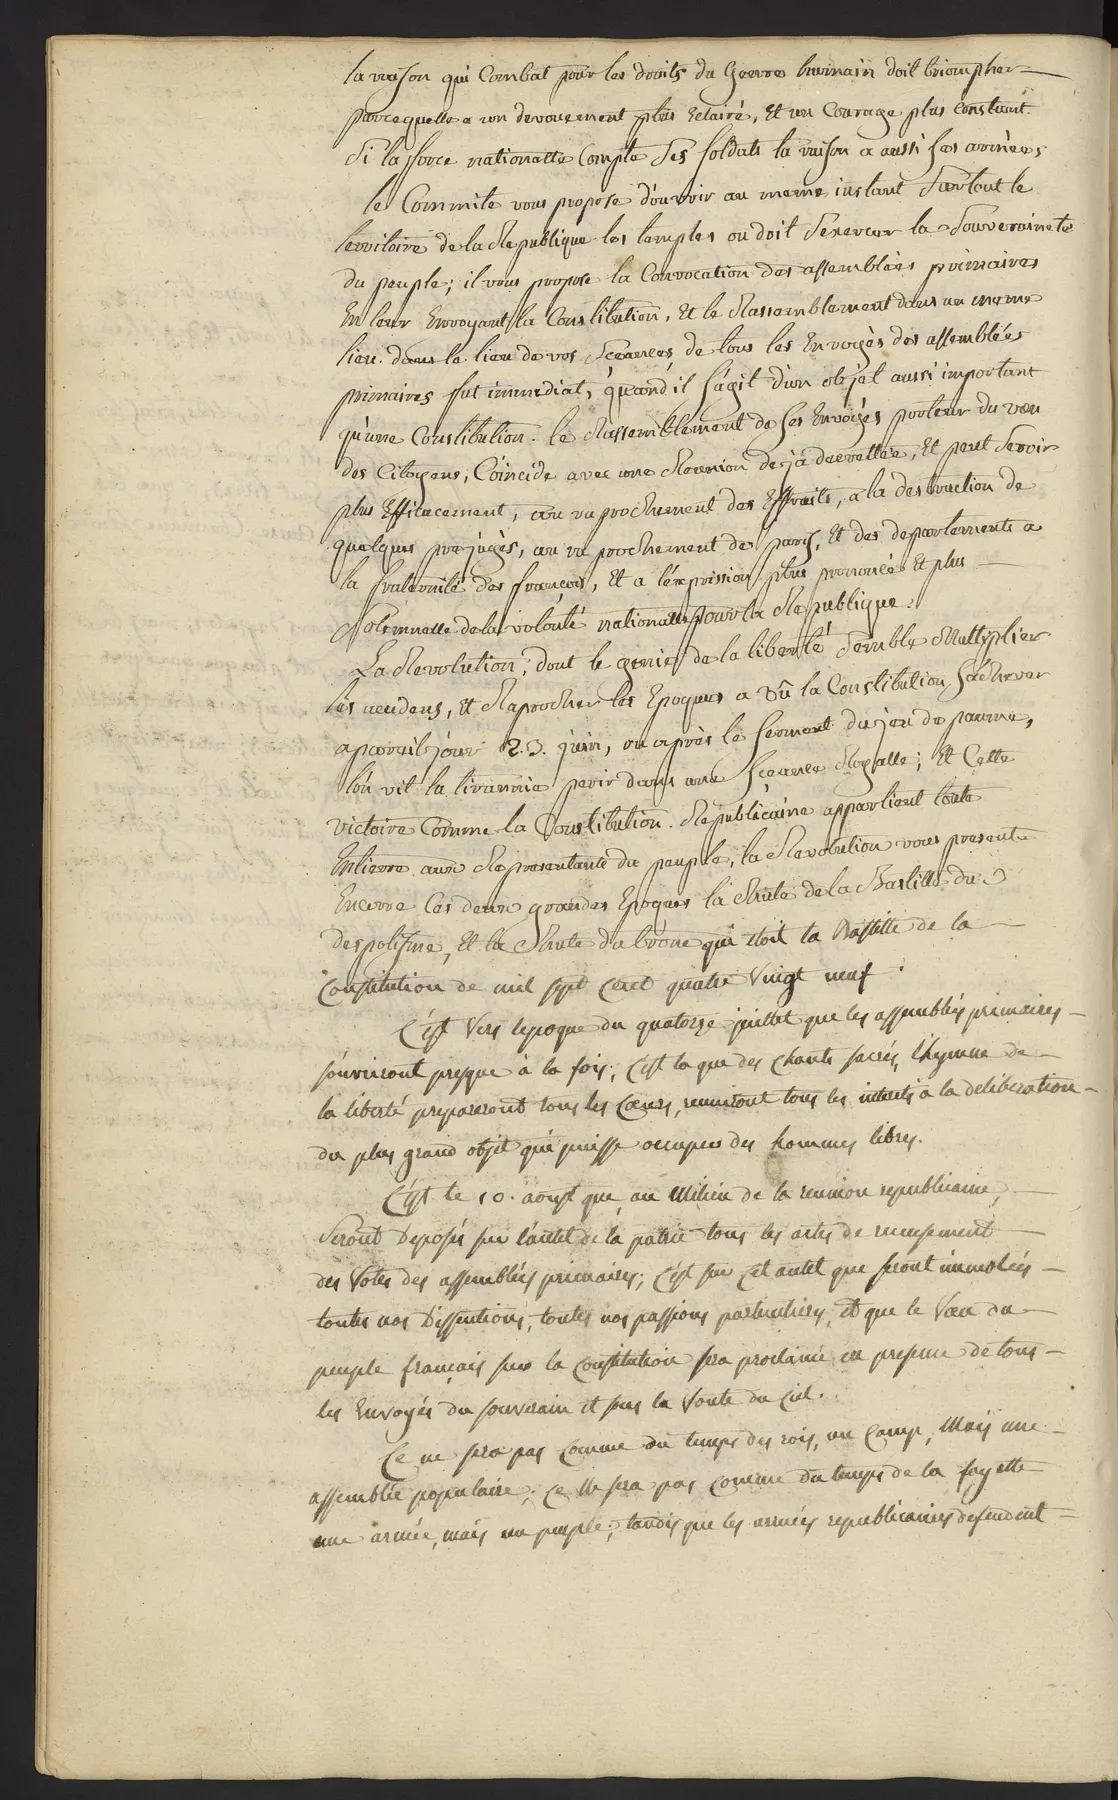 la raison qui Combat pour les droits du Genre humain doit triompher
parcequelle a un devouement plus Eclairé, Et un Courage plus Constant.
Si la force nationalle Compte Ses Soldats la raison a aussi Ses armées
le Commité vous propose d'ouvrir au meme instant Sur tout le
territoire de la Republique les temples ou doit S'exercer la Souveraineté
du peuple; il vous propose la Convocation des assemblées primaires
En leur Envoyant la Constitution, Et le Rassemblement dans un meme
lieu. dans le lieu de vos Sceances de tous les Envoyés des assemblées
primaires fut immediat, quand il s'agit d'un objet aussi important
qu'une Constitution. le Rassemblement de Ses Envoyés porteur du vœu
des Citoyens, Coincide avec une Reunion deja decrettée, Et peut Servir
plus Efficacement, au raprochement des Esprits, a la destruction de
quelques prejugés, au raprochement de paris, Et des departements a
la fraternité des françois, Et a l'expression plus prononcé Et plus
Solemnelle de la volonté nationalle pour la Republique.
La Revolution, dont le genie de la liberté Semble Multiplier
les Et Raprocher les Epoques a Vû la Constitution S'achever
a pareil jour 23. juin, ou apres le Serment du jeu de paume,
l'on vit la tirannie perir dans une Sceance Royalle; Et Cette
victoire Comme la Constitution Republicaine appartient toute
Entierre aux Representants du peuple, la Revolution vous presente
Encorre Ces deux grandes Epoques la Chute de la Bastille du
despotisme, Et la Chute du trone qui étoit la Bastille de la
Constitution de mil sept Cent quatre Vingt neuf.
C'est Vers l'epoque du quatorze juillet que les assemblées primaires
s'ouvriront presque à la fois; C'est la que des Chants sacrés, l'hymne de
la liberté prepareront tous les Cœurs, reuniront tous les interets a la deliberation
du plus grand objet qui puisse occuper des hommes libres.
C'est le 10. aoust que, au Milieu de la reunion republicaine,
Seront Deposés sur l'autel de la patrie tous les actes de recensement
des Votes des assemblées primaires; C'est sur cet autel que seront immolées
toutes nos Dissentions, toutes nos passions particulieres, et que le Vœu du
peuple français sur la Constitution sera proclamé en presence de tous
les Envoyés du souverain et sous la Voute du Ciel.
Ce ne sera pas Comme du temps des rois, un Camp, Mais une
assemblée populaire; Ce ne sera pas Comme du temps de la fayette
une armée, mais un peuple; tandis que les armées republicaines defendent